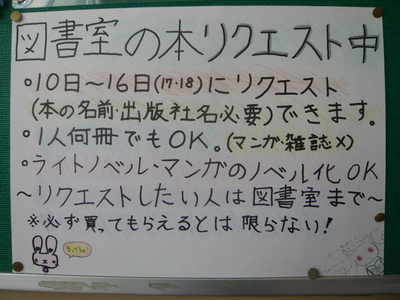 図書室の本リクエスト中
○10日～16日(17・18)にリクエスト
(本の名前・出版社名必要)できます。
○1人何冊でもOK。(マンガ・雑誌×)
○ライトノベル・マンガのノベル化OK
～リクエストしたい人は図書室まで～
※必ず買ってもらえるとは限らない!